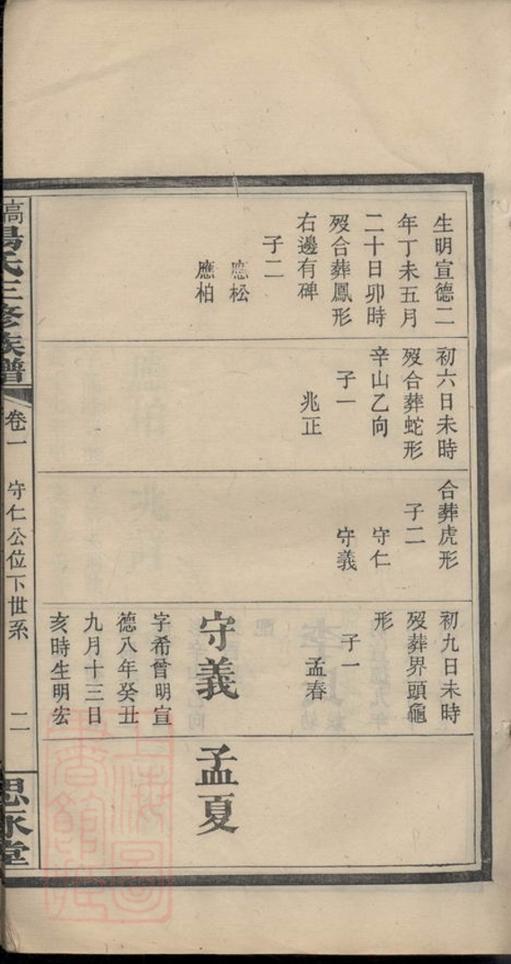 生明宣德二
年丁未五月
二十日卯時
歿合葬鳳形
右邊有碑
子二
應松
應柏
初六日未時
歿合葬蛇形
辛山乙向
子一
兆正
合葬虎形
子二
守仁
守義
初九日未時
歿葬界頭龜
形
子一
孟春
守義
字希曾明宣
德八年癸丑
九月十三日
亥時生明宏
孟夏
楊氏三修族譜
卷一
守仁公位下世系
二
思永堂
上海圖
書館藏